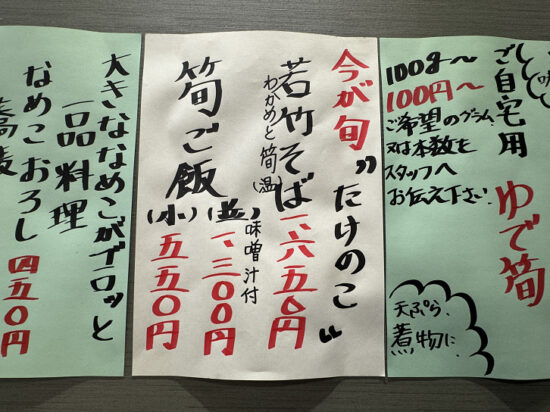 ご自宅用
ゆで筍
100g〜
100円〜
ご希望のグラム
又は本数を
スタッフへ
お伝え下さい
天ぷら、
煮物に。
今が旬〝たけのこ〟
若竹そば 一、六五〇円
わかめと筍(温)
筍ご飯
味噌汁付
(並) 一、三〇〇円
(小) 五五〇円
大きななめこがゴロッと
一品料理
なめこおろし 四五〇円